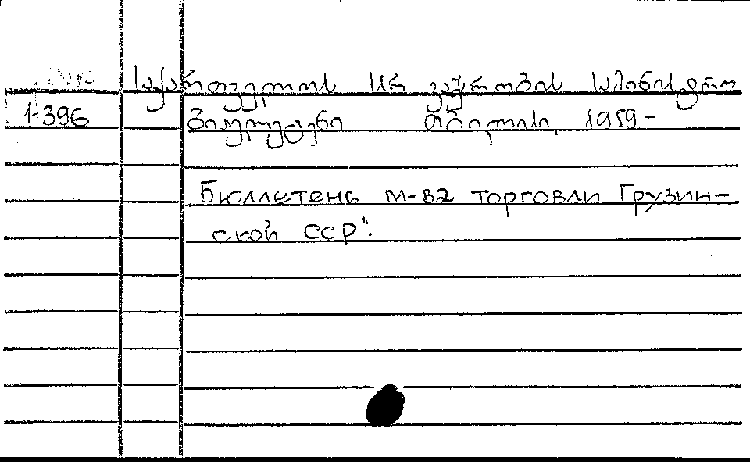 საქართველოს სსრ ვაჭრობის სამინისტრო
1-396 ბიულეტენი თბილისი, 1959-
Бюллетень м-ва торговли Грузин-
ской ССР".